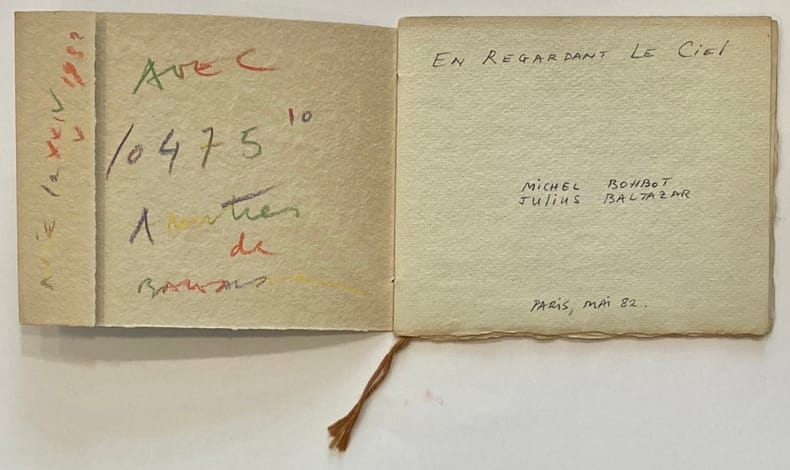 la XXIV V 1982
AVEC
10475 10
de
EN REGARDANT LE CIEL
MICHEL BOHBOT
JULIUS BALTAZAR
PARIS, MAI 82.